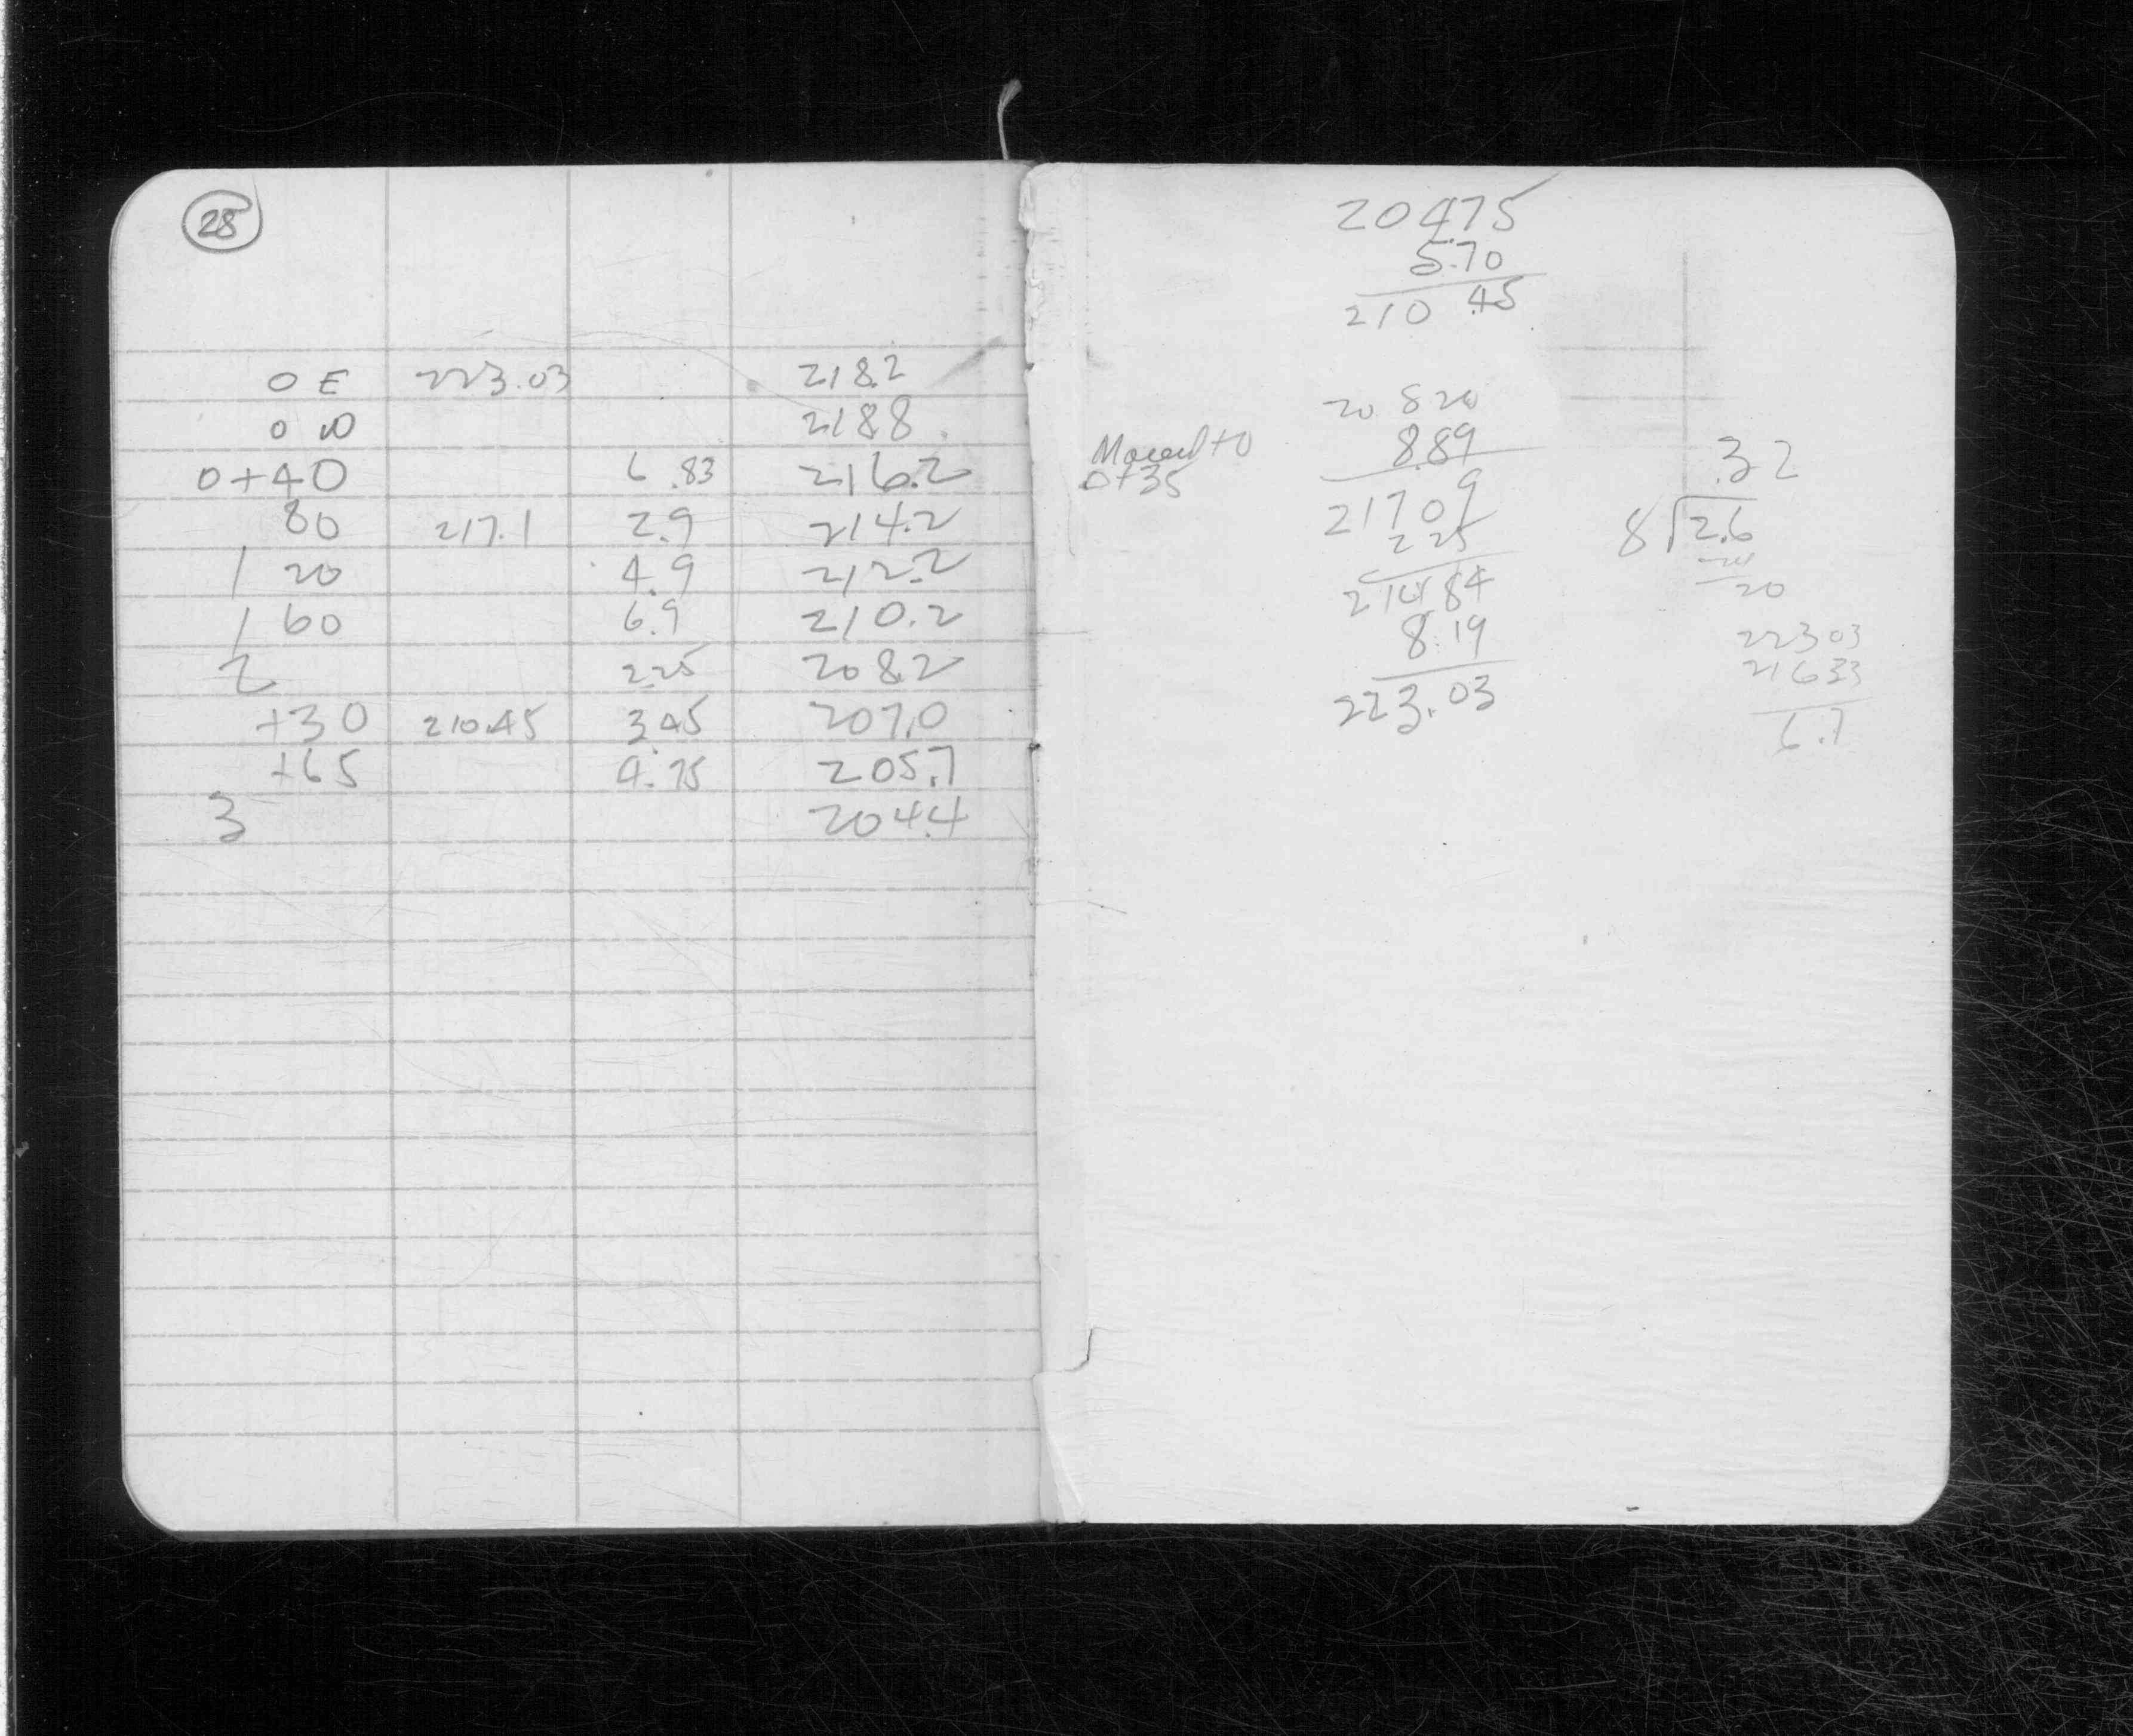 28
0 E 223.03 218.2
0 W 218.8
0+40 6.83 216.2
80 217.1 2.9 214.2
1 20 4.9 212.2
1 60 6.9 210.2
2 2.25 208.2
+30 210.45 3.45 207.0
+65 4.75 205.7
3 204.4
20475
5.70
210.45
20 820
8.89
21709
225
21484
8.19
223.03
Moved to
0+35
.32
8 2.6
24
20
22303
21633
6.7